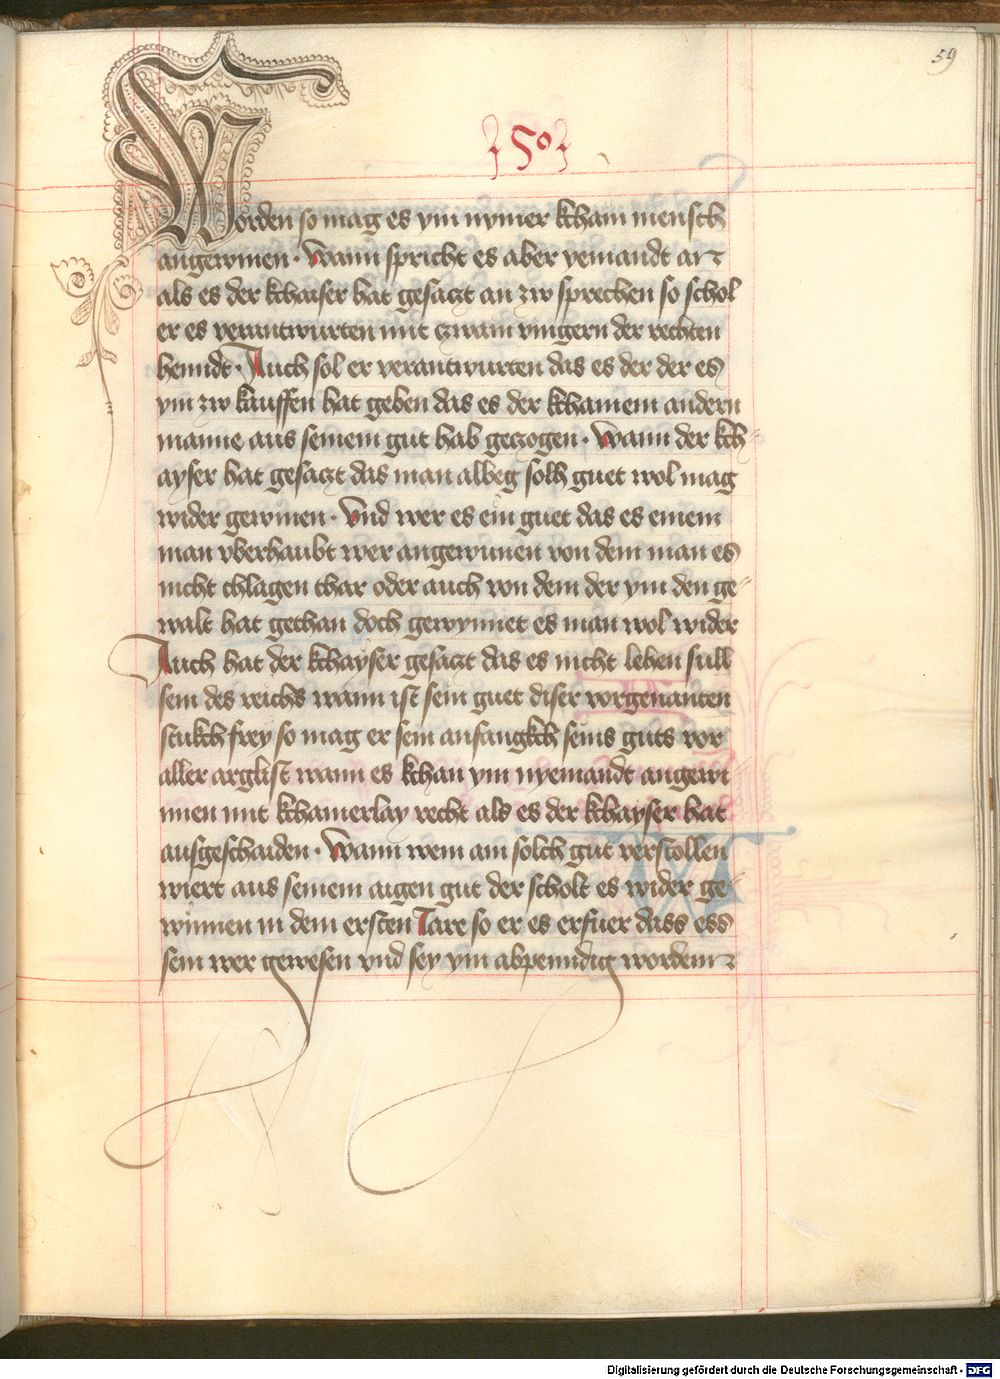 59
50
Worden so mag es ym nymer kcham mensch
angewinen · Wann spricht es aber yemandt an
als es der kchaiser hat gesaczt an zw sprechen so schol
er es verantwurten mit czwain vingern der rechten
henndt · Auch sol er verantwurten das es der der es
ym zw kauffen hat geben das es der kchainem andern
manne aus seinem gut hab geczogen · Wann der kch
ayser hat gesaczt das man albeg solh guet wol mag
wider gewinen · Vnd wer es ein guet das es einem
man vberhaubt wer angewunen von dem man es
nicht chlagen thar oder auch von dem der ym den ge
walt hat gethan doch gewynnet es man wol wider
Auch hat der kchayser gesaczt das es nicht lehen sull
sein des reichs wann ist sein guet diser vorgenanten
stukch frey so mag er sein anfangkch seins guts vor
aller arglist wann es kchan ym nyemandt angewi
nnen mit kchainerlay recht als es der kchayser hat
ausgeschaiden · Wann wem ain solch gut verstollen
wiert aus seinem aigen gut der scholt es wider ge
winnen in dem ersten Iare so er es erfuer dass ess
sein wer gewesen vnd sey ym abpenndig wordenn
Digitalisierung gefördert durch die Deutsche Forschungsgemeinschaft - DFG